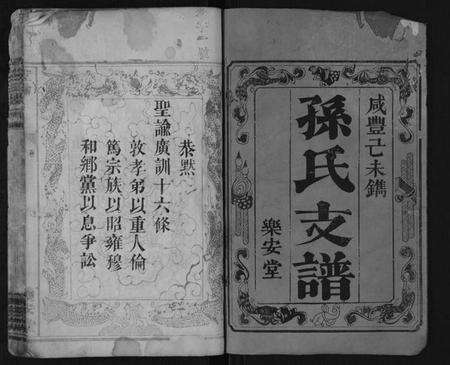 咸豐己未鐫
孫氏支譜
樂安堂
恭黙
聖諭廣訓十六條
敦孝弟以重人倫
篤宗族以昭雍穆
和鄉黨以息爭訟